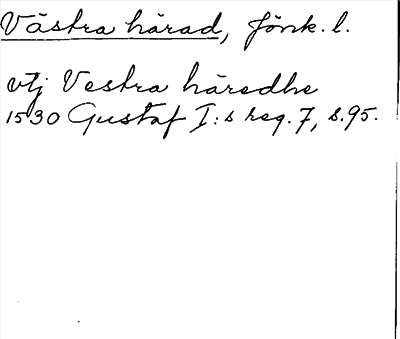 Västra härad, Jönk. l.
vtj Vestra häredhe
1530 Gustaf I:s reg. 7, s. 95.